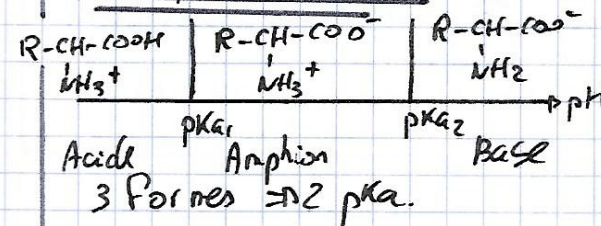 R-CH-COOH
NH3+
R-CH-COO-
NH3+
R-CH-COO-
NH2
pKa1
pKa2
pH
Acide
Amphion
Base
3 formes => 2 pKa.